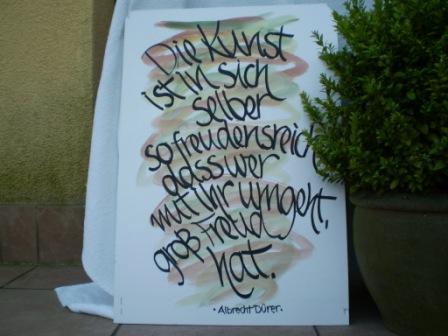 Die Kunst
ist in sich
selber
so freudensreich
dass wer
mit ihr umgeht,
groß Freud
hat.
· Albrecht Dürer ·